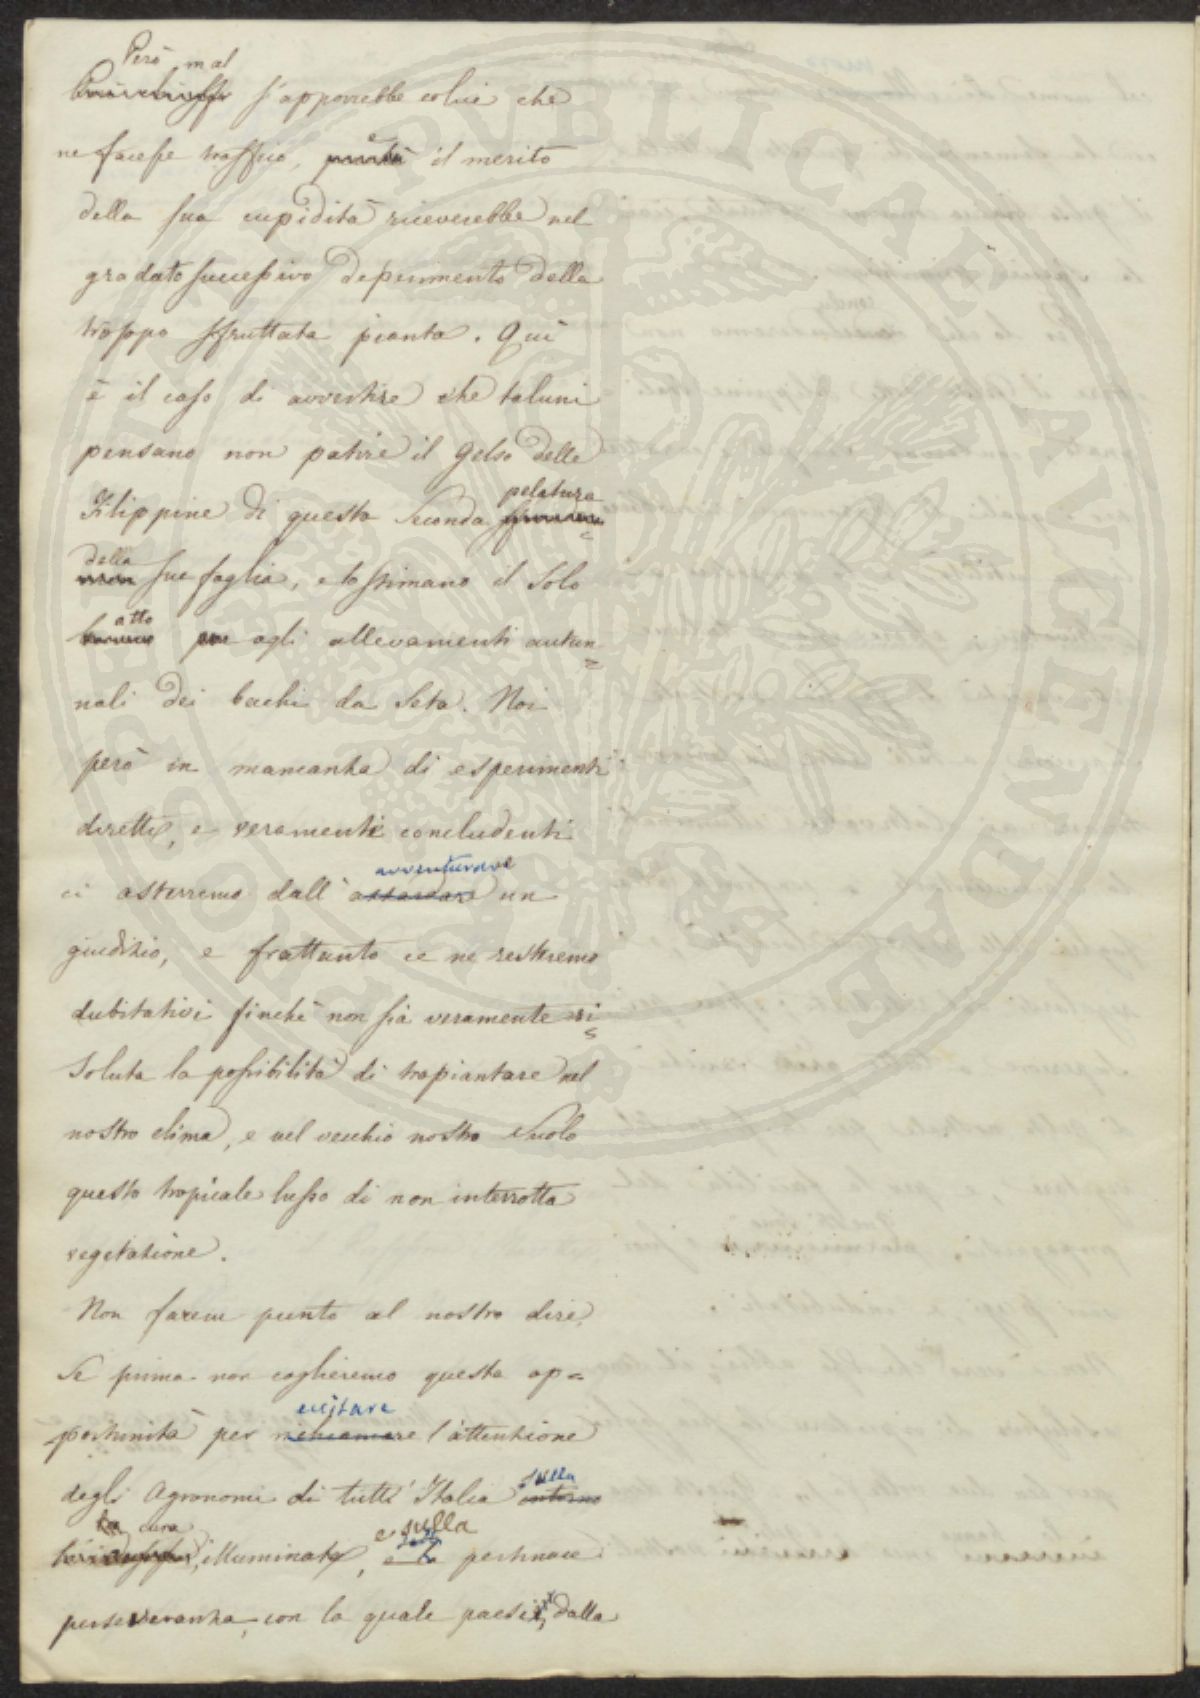 Però mal
s'apporrebbe colui che
ne facesse traffico, e il merito
della sua cupidità riceverebbe nel
gradato successivo deperimento della
troppo sfruttata pianta. Qui
è il caso di avvertire che taluni
pensano non patire il Gelso delle
Filippine di questa seconda pelatura
della sue foglia, e lo stimano il solo
atto agli allevamenti autun=
nali dei bachi da seta. Noi
però in mancanza di esperimenti
diretti, e veramente concludenti
ci asterremo dall' avventurare un
giudizio, e frattanto ce ne resteremo
dubitativi finchè non sia veramente ri=
soluta la possibilità di trapiantare nel
nostro clima, e nel vecchio nostro suolo
questo tropicale lusso di non interrotta
vegetazione.
Non farem punto al nostro dire
se prima non coglieremo questa op=
portunità per richiamare eccitare l'attenzione
degli Agronomi di tutt' Italia intorno sulla
la cura illuminata, e sulla pertinace
perseveranza, con la quale paesi, dalla
PVBLICAE AVGENDAE